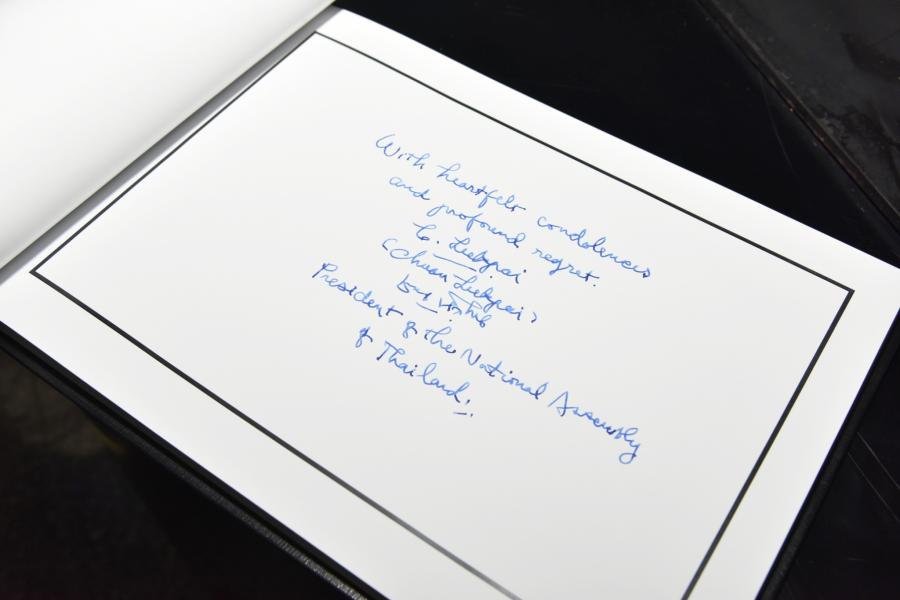 With heartfelt condolences
and profound regret.
C. Leekpai
(Chuan Leekpai)
President of the National Assembly
of Thailand.